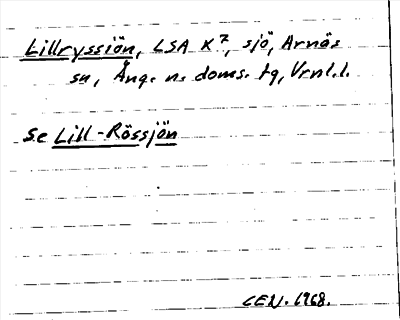 Lillryssjön, LSA K⁷, sjö, Arnäs
sn, Ång. n. doms. tg, Vrnl.l.
Se Lill-Rössjön
CEN. 1968.